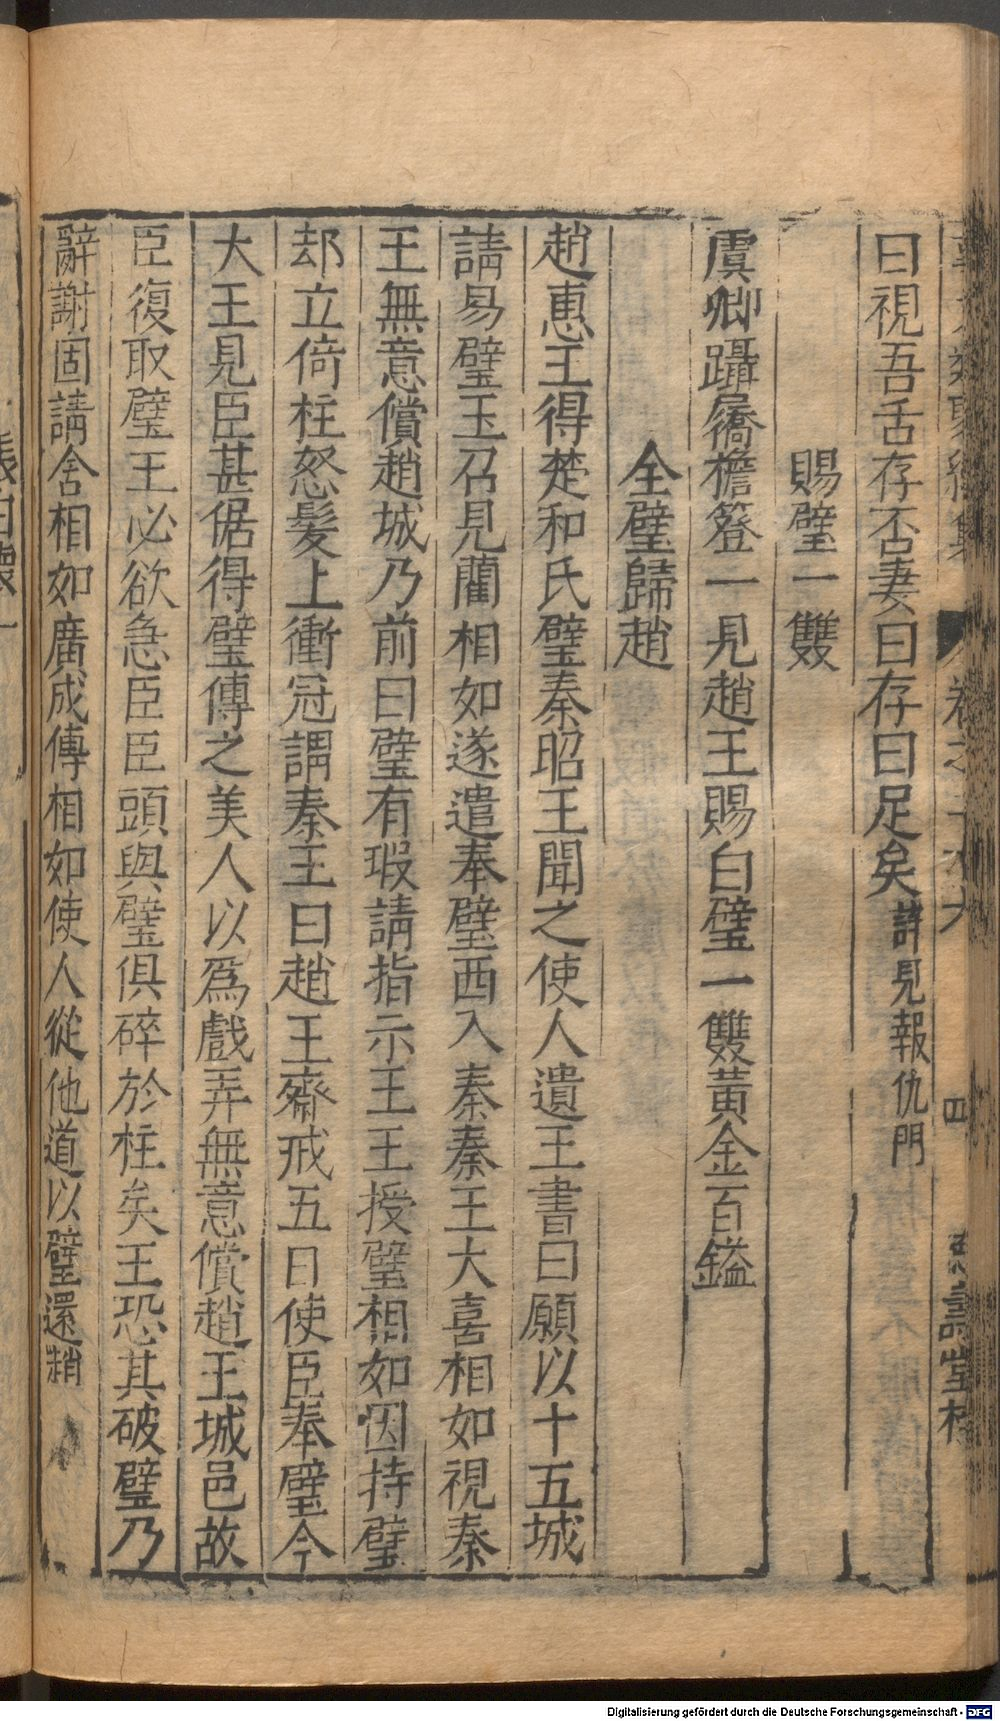 曰視吾舌存否妻曰存曰足矣詳見報仇門
賜璧一雙
虞卿躡屩檐簦一見趙王賜白璧一雙黃金百鎰
全璧歸趙
趙惠王得楚和氏璧秦昭王聞之使人遺王書曰願以十五城
請易璧玉召見藺相如遂遣奉璧西入秦秦王大喜相如視秦
王無意償趙城乃前曰璧有瑕請指示王王授璧相如因持璧
却立倚柱怒髮上衝冠謂秦王曰趙王齋戒五日使臣奉璧今
大王見臣甚倨得璧傳之美人以為戲弄無意償趙王城邑故
臣復取璧王必欲急臣臣頭與璧俱碎於柱矣王恐其破璧乃
辭謝固請舍相如廣成傳相如使人從他道以璧還趙
Digitalisierung gefördert durch die Deutsche Forschungsgemeinschaft - DFG